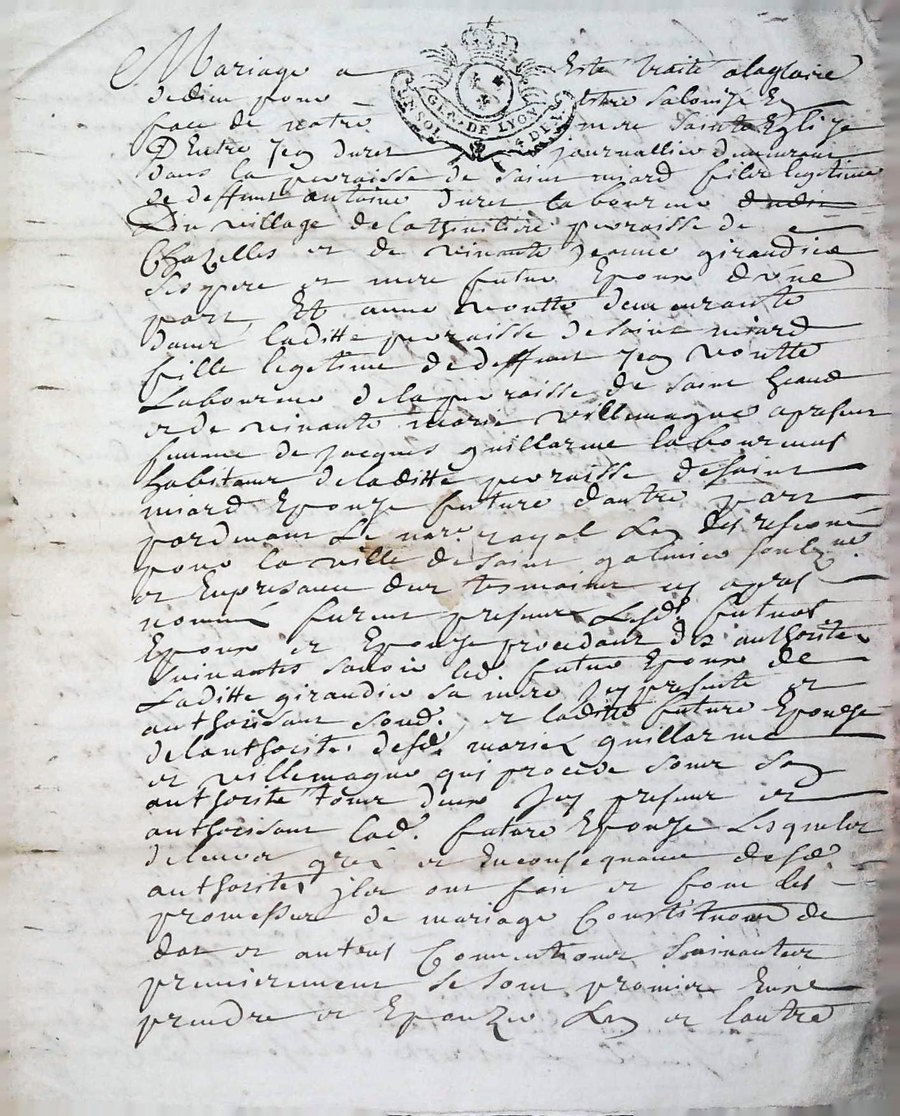 UN SOL GEN. DE LYON 4 DEN.
Mariage a Esté traité alagloire
dedieu pour Estre Salonizé En
face de notre mere Sainte Eglize
D'Entre Jean duret journallier demeurant
dans la parroisse de Saint miard fils legitime
de deffunt antoine duret laboureur dudit
Du village de parroisse de
Chazelles et de vivante jeanne girandier
Ses pere et mere futur Epoux d'une
part Et anne voutte demeurante
dans laditte parroisse de Saint miard
fille legitime de deffunt jean voutte
Laboureur delaparroisse de Saint heand
et de vivante marie villemagne apresent
femme de jacques guillarme laboureur
habitant deladitte parroisse de Saint
miard Epouze future d'autre part
pardevant Le nore. royal
pour la ville de Saint galmier Soubzné
et En presance des tesmoins cy apres
nommé furent presents Lesd. futurs
Epoux et Epouze procedant des authorités
Suivantes Savoir led. futur Epoux de
Laditte girandier Sa mere Icy presente et
authorisant Sond. et laditte future Epouze
delauthorité desd. mariés guillarme
et villemagne qui procede Sous Sa
authorité tous deux Icy presents et
authorisant lad. future Epouze Lesquels
deleur gré et En consequance desd.
authorités ils ont fait et font les
promesses de mariage Constitutions de
dot et autres Conventions Suivantes
premierement Se Sont promis En
prendre et Epouzer Un et lautre